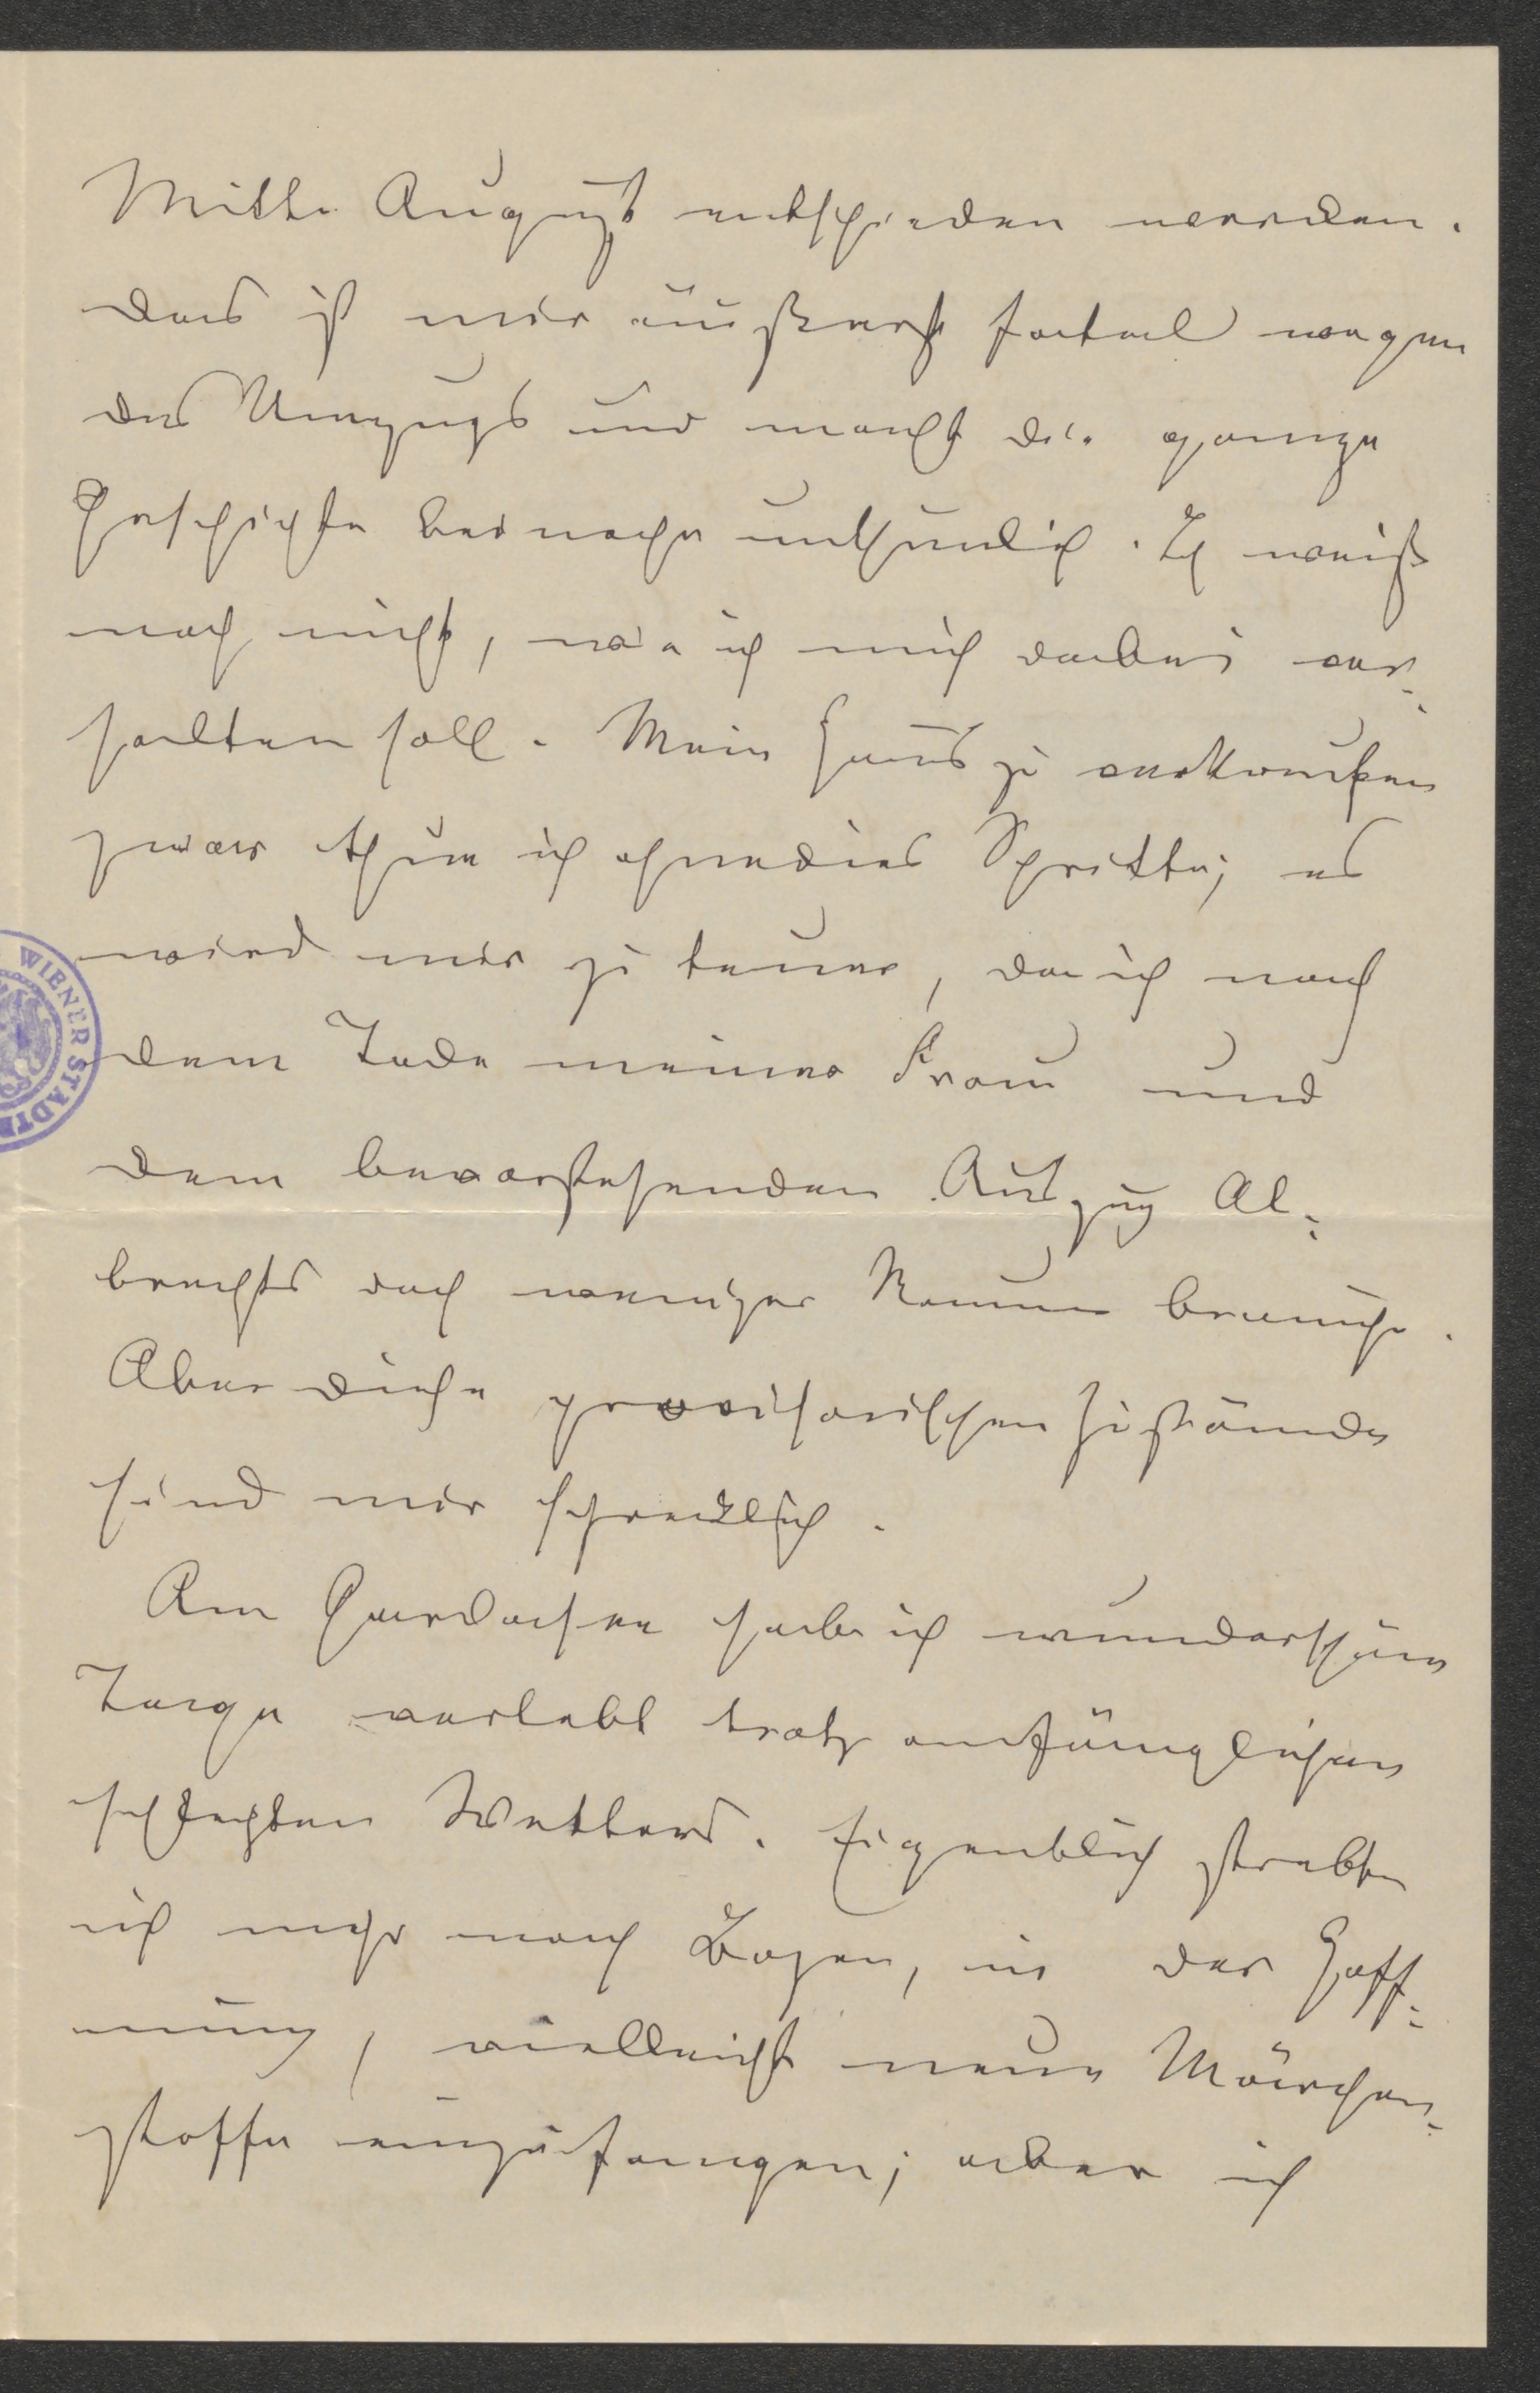 Mitte August entschieden werden.
Das ist mir äußerst fatal wegen
des Umzugs und macht die ganze
Geschichte beinahe unthunlich. Ich weiß
noch nicht, wie ich mich dabei ver-
halten soll. Mein Haus zu verkaufen
zwar thue ich ohnedies Schritte; es
wird mir zu teuer, da ich nach
dem Tode meiner Frau und
dem bevorstehenden Auszug Al-
brechts doch weniger Raum brauche.
Aber diese provisorischen Zustände
sind mir schrecklich.
Am Gardasee habe ich wunderschöne
Tage verlebt trotz anfänglichen
schlechten Wetters. Eigentlich strebte
ich mehr nach Bozen, in der Hoff-
nung, vielleicht neue Märchen-
stoffe einzufangen; aber ich
WIENER STADTB